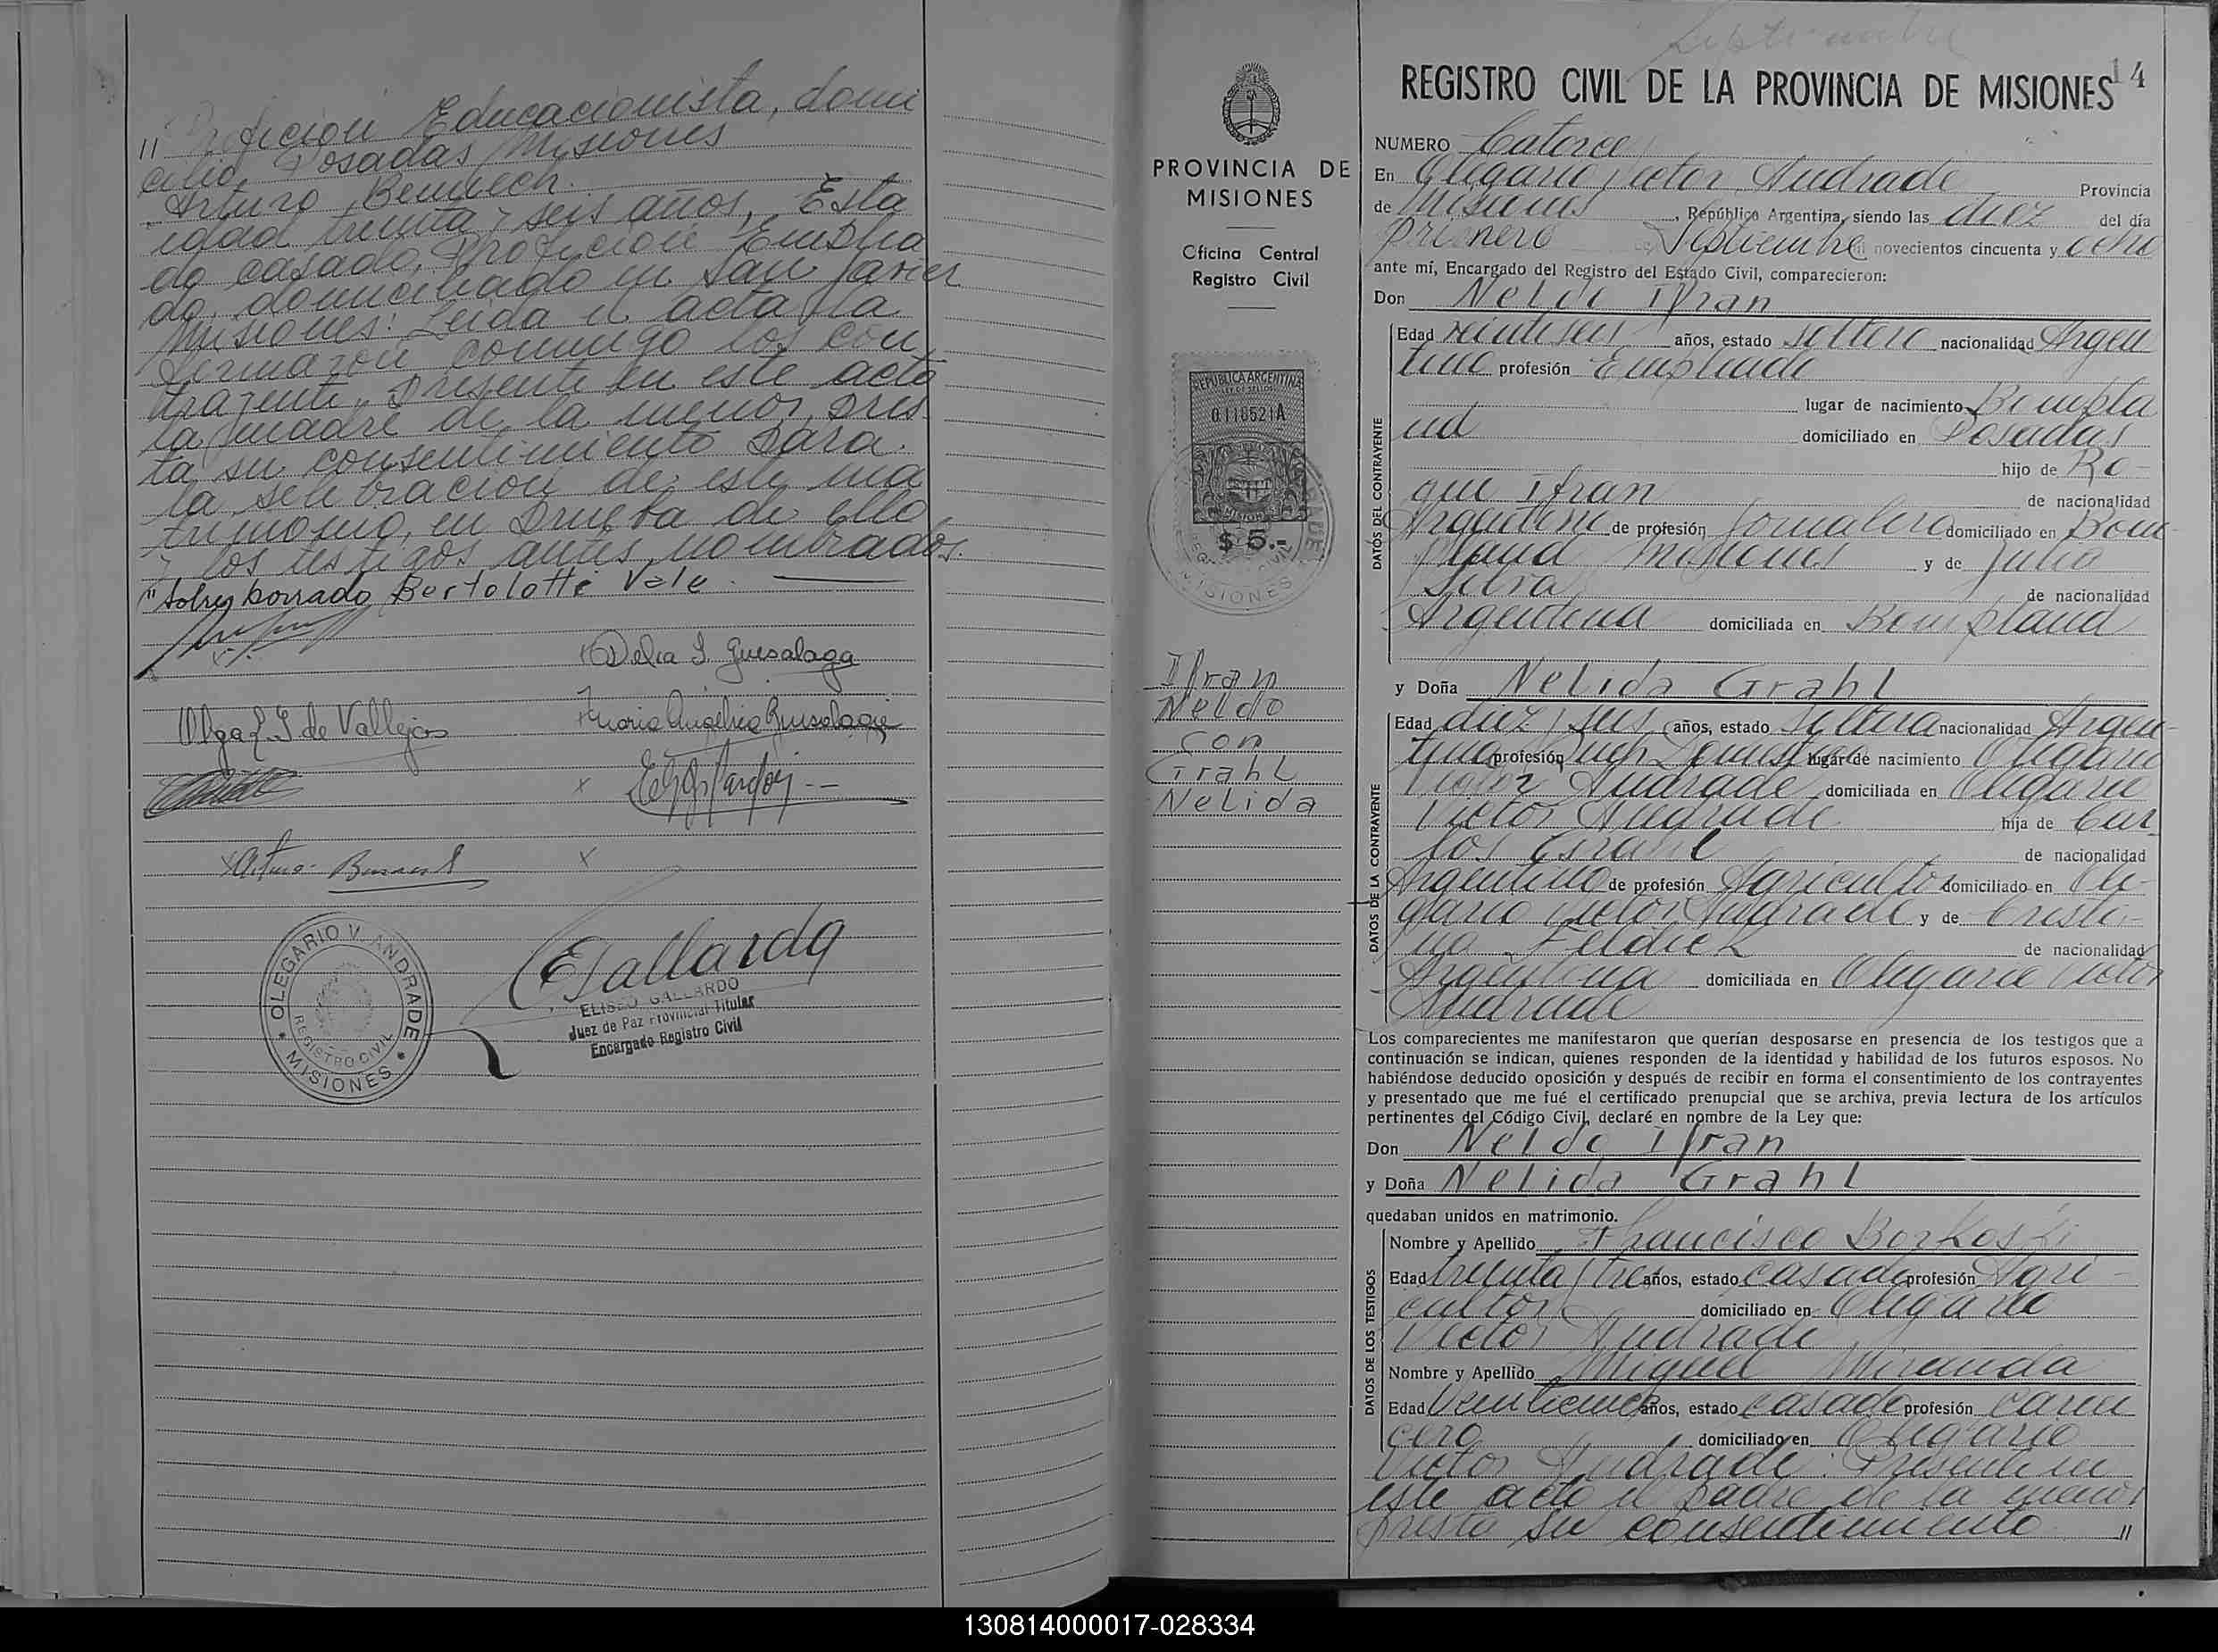 " Profición Educacionista, domi
cilio Posadas Misiones
Arturo Bembech.
idad treinta y seis años, Esta
do casado, Profición Emplea
do, domiciliado en San Javier
Misiones: Leida el acta la
firmaron conmigo los con
trayente, Presente en este acto
la madre de la menor, pres
ta su consentimiento para
la selebracion de este ma
trimonio, en prueba de ello
y los testigos antes nombrados.
"Sobre borrado Bertolotti Vale.
Delia S. Guesalaga
Olga L. I de Vallejos
Maria Angelica Guesalaga
Arturo
EGallardo
ELISEO GALLARDO
Juez de Paz Provincial Titular
Encargado Registro Civil
OLEGARIO V. ANDRADE
REGISTRO CIVIL
* MISIONES *
PROVINCIA DE
MISIONES
Oficina Central
Registro Civil
REPUBLICA ARGENTINA
0116521A
MISIONES
$ 5.-
Ifran
Neldo
con
Grahl
Nelida
Septiembre
14
REGISTRO CIVIL DE LA PROVINCIA DE MISIONES
NUMERO Catorce
En Olegario Victor Andrade Provincia
de Misiones, República Argentina, siendo las diez del día
primero Septiembre novecientos cincuenta y ocho
ante mí, Encargado del Registro del Estado Civil, comparecieron:
Don Neldo Ifran
DATOS DEL CONTRAYENTE
Edad veintiseis años, estado soltero nacionalidad Argen
tino profesión Empleado
lugar de nacimiento Bompla
nd domiciliado en Posadas
hijo de Ro-
que Ifran de nacionalidad
Argentino de profesión Jornalero domiciliado en Bom-
pland Misiones y de Julia
Silva de nacionalidad
Argentina domiciliada en Bompland
y Doña Nelida Grahl
DATOS DE LA CONTRAYENTE
Edad diez y seis años, estado soltera nacionalidad Argen-
tina profesión Domest lugar de nacimiento Olegario
Victor Andrade domiciliada en Olegario
Victor Andrade hija de Car
los Grahl de nacionalidad
Argentino de profesión Agricultor domiciliado en Ole-
gario Victor Andrade y de Cristi-
na Feldick de nacionalidad
Argentina domiciliada en Olegario Victor
Andrade
Los comparecientes me manifestaron que querían desposarse en presencia de los testigos que a
continuación se indican, quienes responden de la identidad y habilidad de los futuros esposos. No
habiéndose deducido oposición y después de recibir en forma el consentimiento de los contrayentes
y presentado que me fué el certificado prenupcial que se archiva, previa lectura de los artículos
pertinentes del Código Civil, declaré en nombre de la Ley que:
Don Neldo Ifran
y Doña Nelida Grahl
quedaban unidos en matrimonio.
DATOS DE LOS TESTIGOS
Nombre y Apellido Francisco Borkoski
Edad treinta y tres años, estado casado profesión Agri-
cultor domiciliado en Olegario
Victor Andrade
Nombre y Apellido Miguel Miranda
Edad Veinticinco años, estado casado profesión Carni
cero domiciliado en Olegario
Victor Andrade: Presente en
este acto el padre de la menor
presta su consentimiento "
130814000017-028334